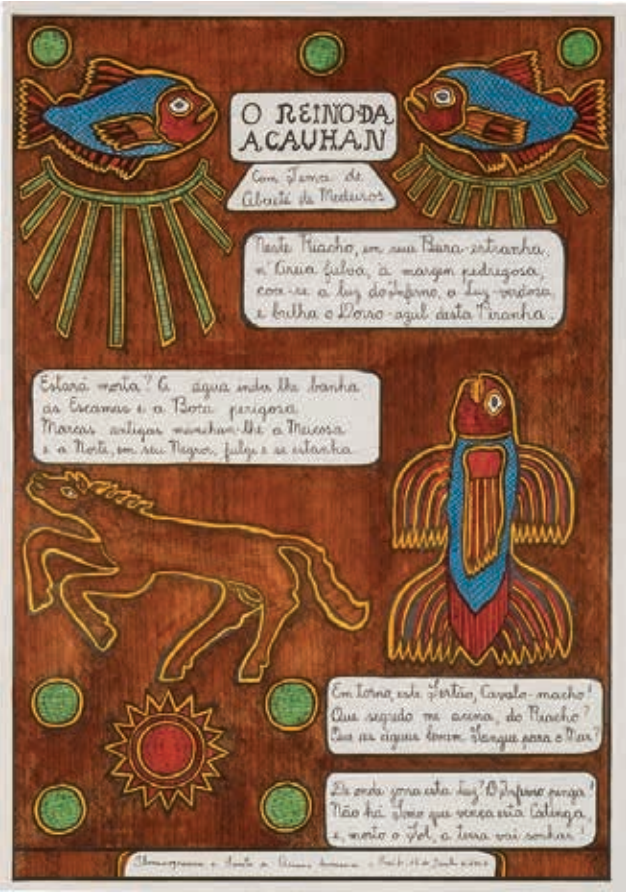 O REINO DA
ACAUHAN
Com Tema de
Abaeté de Medeiros
Neste Riacho, em sua Beira-estranha,
n'Areia fulva, à margem pedregosa,
coa-se a luz do Inferno, a Luz-verdosa,
e brilha o Dorso-azul desta Piranha.
Estará morta? A água inda lhe banha
as Escamas e a Boca perigosa
Marcas antigas mancham-lhe a
e a Morte, em seu Negror, fulge e se estanha
Em torno, este Sertão, Cavalo-macho!
Que segredo me acena, do Riacho?
Que as águas levem Sangue para o Mar?
De onde jorra esta Luz? O Inferno pinga!
Não há Sono que vença esta Catinga,
e, morto o Sol, a terra vai sonhar!